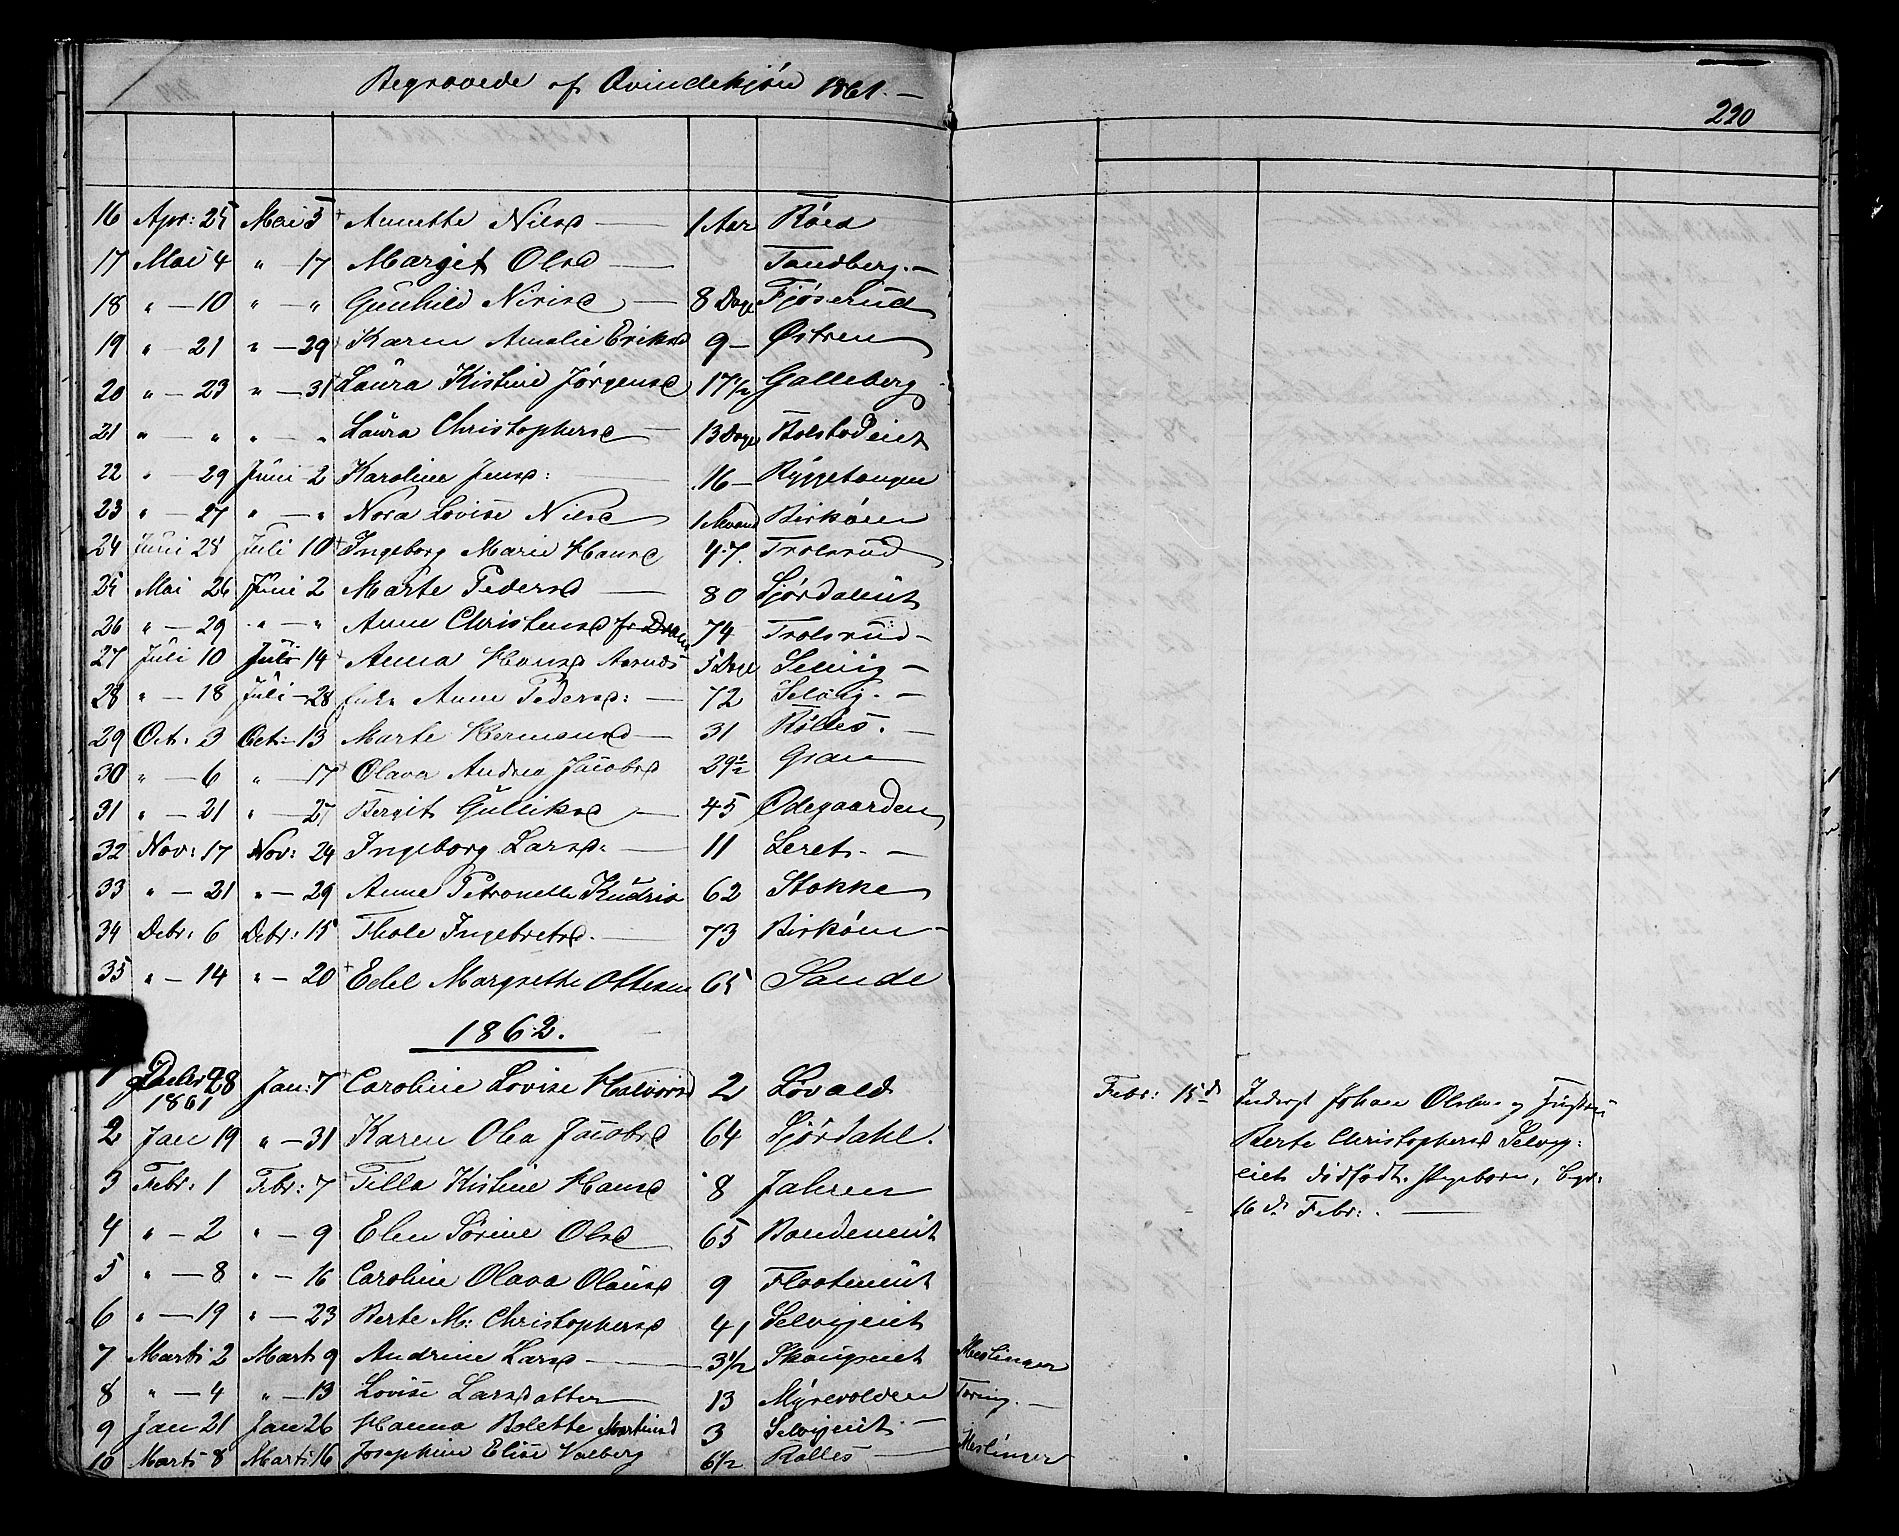 Begravede af Qvindekjön 1861. —
220
16 Apr: 25 Mai 5 + Annette Nilsd — 1 Aar Röed
17 Mai 4 " — 17 Margit Olsd — Tandberg. —
18 " — 10 " — " Gunhild Nirisd — 8 Dage Fjöserud
19 " — 21 " — 29 + Karen Amalie Eriksd 9 — Østren
20 " — 23 " — 31 + Laura Kistine Jørgensd 17 1/2 Galleberg
21 " — " " — " Laura Christophersd — 13 Dage Bolstadeiet
22 " — 29 Juni 2 Karoline Jensd: — 16 — Ryggetangen
23 " — 27 " — " Nora Lovise Nilsd 1 Maand Birköen
24 Juni 28 Juli 10 + Ingeborg Marie Hansd 47. Trolsrud
25 Mai 26 Juni 2 Marte Pedersd — 80 Sjördaleiet
26 " — 29 " — " Anne Christensd 74 Trolsrud —
27 Juli 10 Juli 14 + Anna Hansd 5 Dage Selvig —
28 " — 18 Juli — 28 Anne Pedersd: — 72 Selvig. —
29 Oct: 3 Oct: — 13 Marte Hermansd — 31 Rølles. —
30 " — 6 " — 17 + Olava Andrea Jacobsd 29 1/2 Gran
31 " — 21 " — 27 Bergit Gulliksd — 45 Ødegaarden
32 Nov: 17 Nov: 24 Ingeborg Larsd: — 11 Leret. —
33 " — 21 " — 29 Anne Petronelle 62 Stokke
34 Debr: 6 Debr: 15 Thole Ingebretsd. — 73 Birköen —
35 " — 14 " — 20 + Edel Margrethe Ottesen 65 Sande
1862.
1 Debr 28 Jan: 7 + Caroline Lovise Halvorsd 2 Løvald
1861
2 Jan 19 " — 31 Karen Olea Jacobsd 64 Sjördahl.
3 Febr: 1 Febr: 7 + Tilla Kistine Hansd 8 Jahren
4 " — 2 " — 9 Elen Sørine Olsd 65 Bondeneiet
5 " — 8 " — 16 Caroline Olava Olausd 9 Flaateneiet
6 " — 19 " — 23 Berte M: Christophersd 41 Selvigeiet
7 Marts 2 Marts 9 Andrine Larsd — 3 1/2 Skougseiet Meslinger
8 " — 4 " — 13 Lovise Larsdatter 13 Myrevolden Tæring. —
9 Jan 21 Jan 26 Hanna Bolette Martinsd 3 Selvigeiet. —
10 Marts 8 Marts 16 Josephine Elise Valberg 6 1/2 Rølles — Meslinger
Febr: 15 d Inderst Johan Olsen og Hustru
Berte Christophersd Selvig-
eiet dödfödt Pigebarn, begr:
16 d Febr: . —